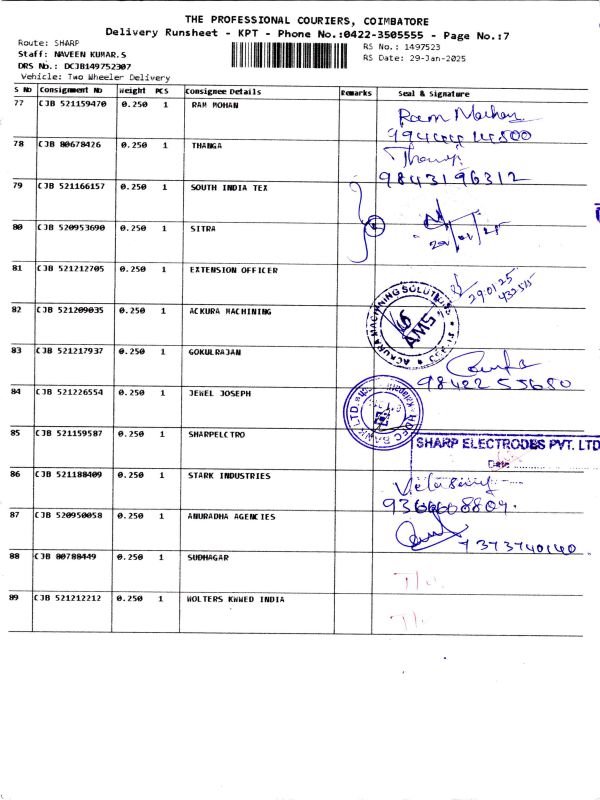 THE PROFESSIONAL COURIERS, COIMBATORE
Delivery Runsheet - KPT - Phone No.:0422-3505555 - Page No.:7
Route: SHARP
RS No.: 1497523
Staff: NAVEEN KUMAR.S
RS Date: 29-Jan-2025
DRS No.: DCJB149752307
Vehicle: Two Wheeler Delivery
S No Consignment No Weight PCS Consignee Details Remarks Seal & Signature
77 CJB 521159470 0.250 1 RAM MOHAN
Ram Mohan
78 CJB 80678426 0.250 1 THANGA
9843196312
79 CJB 521166157 0.250 1 SOUTH INDIA TEX
80 CJB 520953690 0.250 1 SITRA
81 CJB 521212705 0.250 1 EXTENSION OFFICER
29.01.25
82 CJB 521209035 0.250 1 ACKURA MACHINING
ACKURA MACHINING SOLUTIONS
AMS
83 CJB 521217937 0.250 1 GOKULRAJAN
98422 55680
84 CJB 521226554 0.250 1 JEWEL JOSEPH
HDFC BANK LTD.
85 CJB 521159587 0.250 1 SHARPELCTRO
SHARP ELECTRODES PVT. LTD
Date
86 CJB 521188409 0.250 1 STARK INDUSTRIES
87 CJB 520950058 0.250 1 ANURADHA AGENCIES
7373740140
88 CJB 80788449 0.250 1 SUDHAGAR
89 CJB 521212212 0.250 1 WOLTERS KWWED INDIA